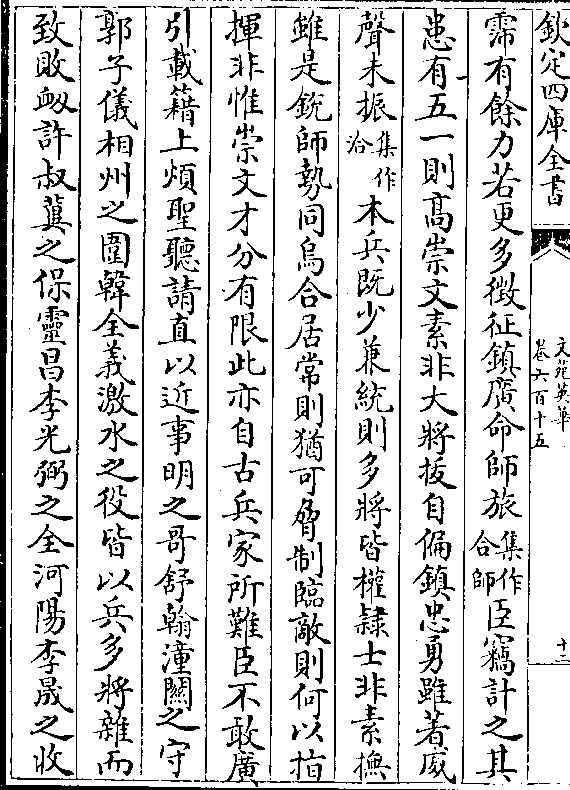 欽定四庫全書
文苑英華
卷六百十五
十二
霈有餘力若更多徵征鎮廣命師旅集作合師臣竊計之其
患有五一則髙崇文素非大將拔自偏鎮忠勇雖著威
聲未振集作洽本兵既少兼統則多將皆權隸士非素撫
雖是銳師勢同烏合居常則猶可脅制臨敵則何以指
揮非惟崇文才分有限此亦自古兵家所難臣不敢廣
引載籍上煩聖聽請直以近事明之哥舒翰潼關之守
郭子儀相州之圍韓全義激水之役皆以兵多將雜而
致敗衂許叔兾之保靈昌李光弼之全河陽李晟之收